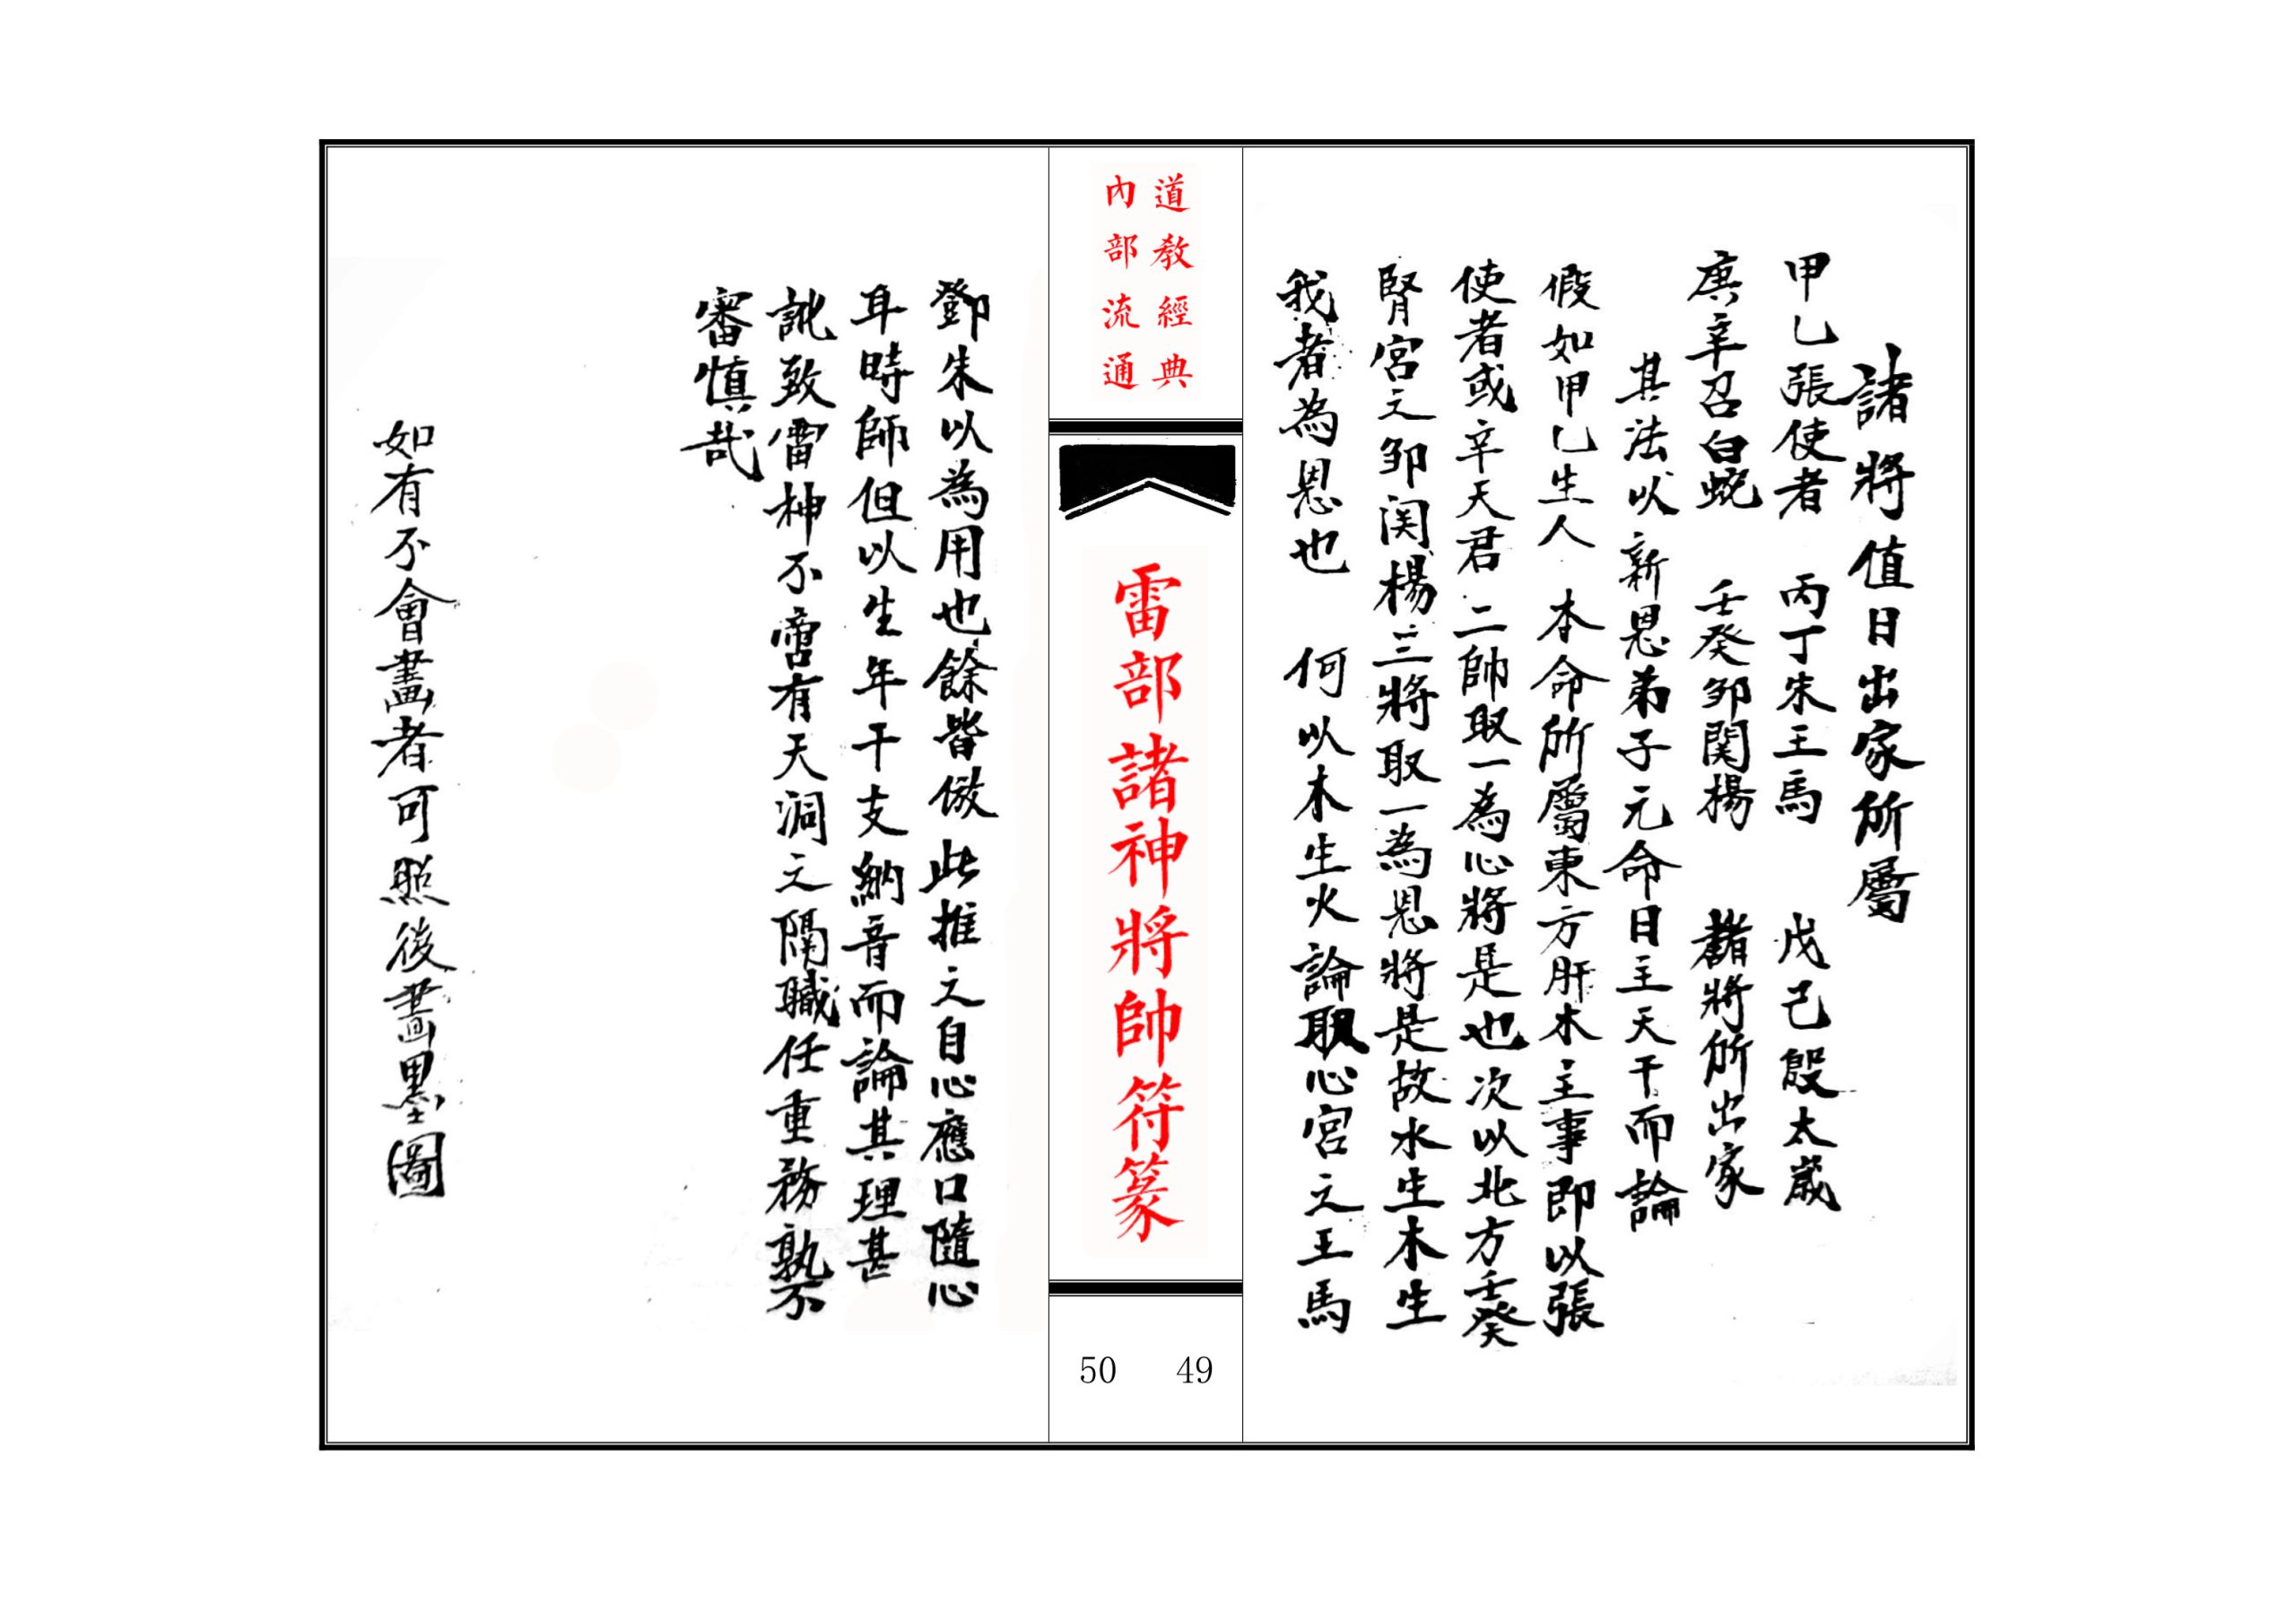 諸將值日出家所屬
甲乙張使者 丙丁朱王馬 戊己殷太歲
庚辛召白蛇 壬癸鄒関楊 諸將所出家
其法以新恩弟子元命日主天干而論
假如甲乙生人 本命所屬東方肝木主事即以張
使者或辛天君 二帥取一為心將是也次以北方壬癸
腎宮之鄒関楊三將取一為恩將是故水生木生
我者為恩也 何以木生火論職心宮之王馬
道教經典
內部流通
雷部諸神將帥符篆
50 49
鄧朱以為用也餘皆倣此推之自心應口隨心
耳時師但以生年干支納音而論其理甚
訛致雷神不啻有天洞之隔職任重務孰不
審慎哉
如有不會畫者可照後畫墨圖